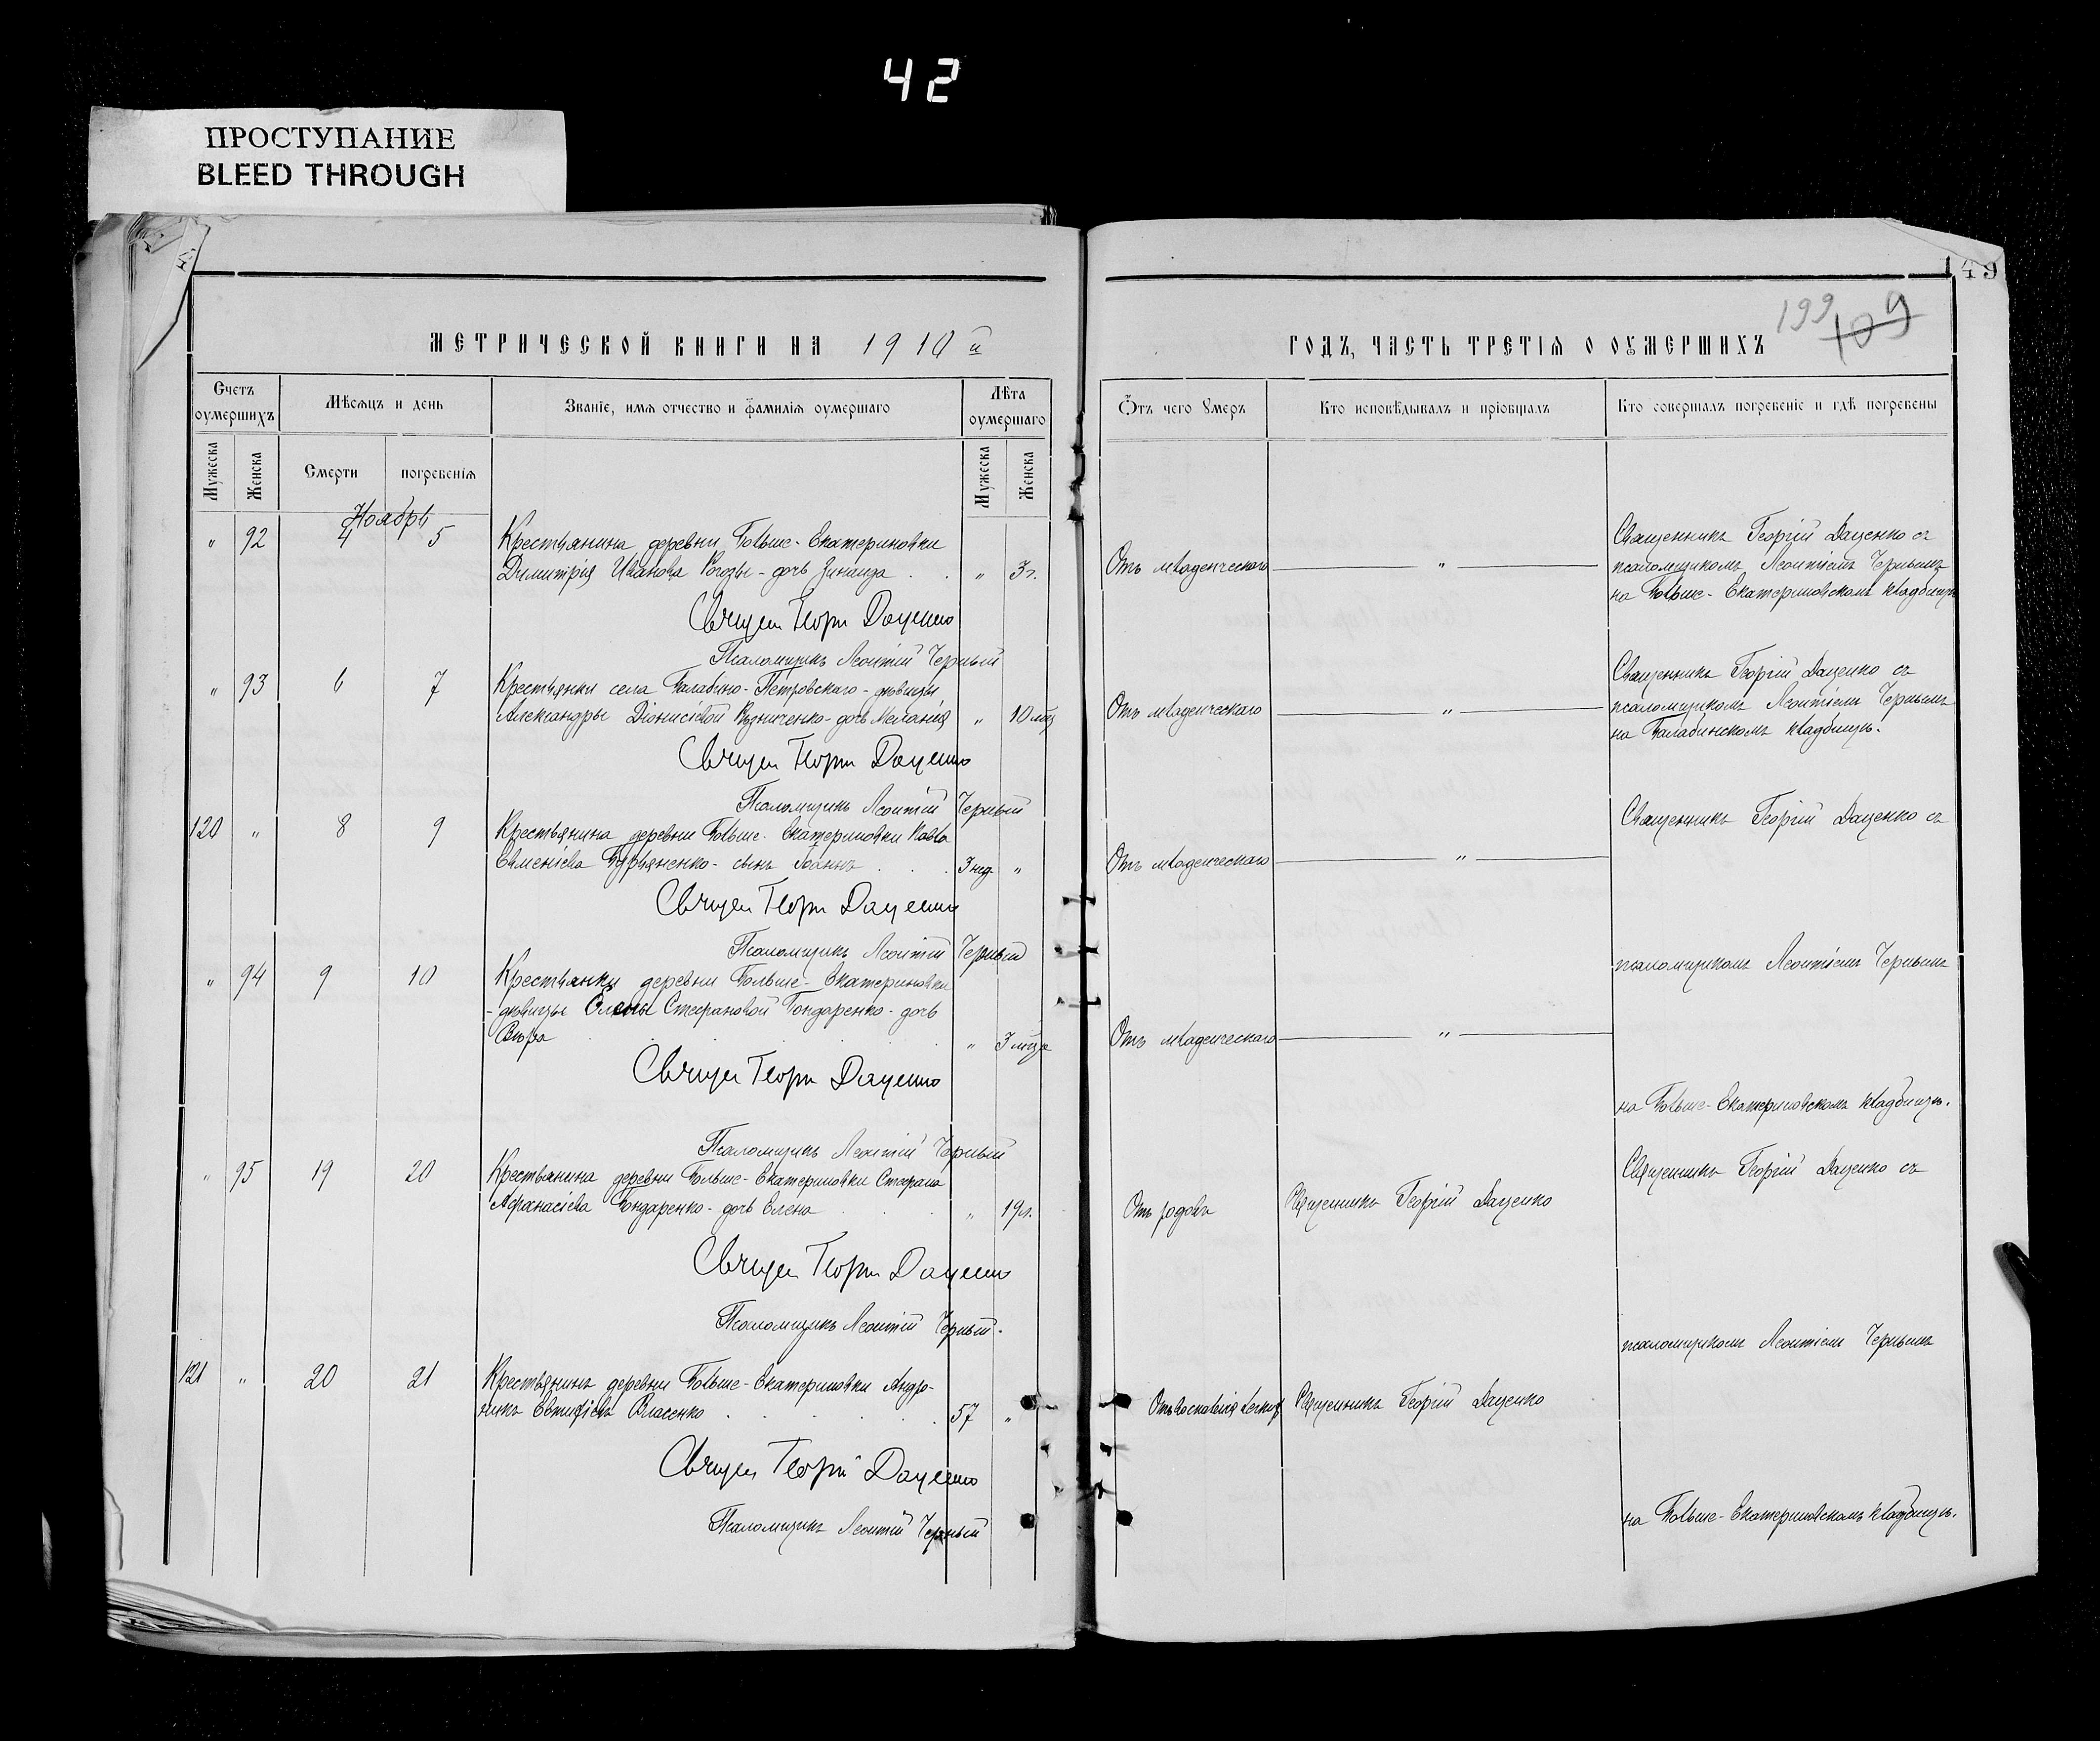 42
ПРОСТУПАНИЕ
BLEED THROUGH
МЕТРИЧЕСКОЙ КНИГИ НА 1910 й
Счетъ оумершихъ
Мѣсяцъ и день
Званіе, имя отчество и фамилія оумершаго
Лѣта оумершаго
Мужеска
Женска
Смерти
погребенія
Мужеска
Женска
Ноябрь
" 92 4 5 Крестьянина деревни Больше-Екатериновки
Димитрія Иванова Рогозы - дочь Зинаида . . " 3 г.
Священ Георгій Даценко
Псаломщикъ Леонтій Черный
" 93 6 7 Крестьянки села Балабино-Петровскаго - дѣвицы
Александры Діонисіевой - дочь Меланія " 10 мц
Священ Георгій Даценко
Псаломщикъ Леонтій Черный
120 " 8 9 Крестьянина деревни Больше-Екатериновки Павла
Евменіева - сынъ Іоаннъ . . . 3 нед. "
Священ Георгій Даценко
Псаломщикъ Леонтій Черный
" 94 9 10 Крестьянки деревни Больше-Екатериновки
- дѣвицы Елены Стефановой Бондаренко - дочь
Вѣра " 3 мца
Священ Георгій Даценко
Псаломщикъ Леонтій Черный
" 95 19 20 Крестьянина деревни Больше-Екатериновки Стефана
Афанасіева Бондаренко - дочь Елена . . . " 19 л.
Священ Георгій Даценко
Псаломщикъ Леонтій Черный.
121 " 20 21 Крестьянинъ деревни Больше-Екатериновки Андро-
никъ Евтихіевъ Власенко . . . . . 57 "
Священ Георгій Даценко
Псаломщикъ Леонтій Черный
149
199
109
ГОДЪ, ЧАСТЬ ТРЕТІЯ О ОУМЕРШИХЪ
Отъ чего Умеръ
Кто исповѣдывалъ и пріобщалъ
Кто совершалъ погребеніе и гдѣ погребены
Священникъ Георгій Даценко съ
Отъ младенческаго " псаломщикомъ Леонтіемъ Чернымъ
на Больше-Екатериновскомъ кладбищѣ
Священникъ Георгій Даценко съ
Отъ младенческаго " псаломщикомъ Леонтіемъ Чернымъ
на Балабинскомъ кладбищѣ.
Священникъ Георгій Даценко съ
Отъ младенческаго "
псаломщикомъ Леонтіемъ Чернымъ
Отъ младенческаго "
на Больше-Екатериновскомъ кладбищѣ.
Священникъ Георгій Даценко съ
Отъ родовъ Священникъ Георгій Даценко
псаломщикомъ Леонтіемъ Чернымъ
Отъ воспаленія легкихъ Священникъ Георгій Даценко
на Больше-Екатериновскомъ кладбищѣ.